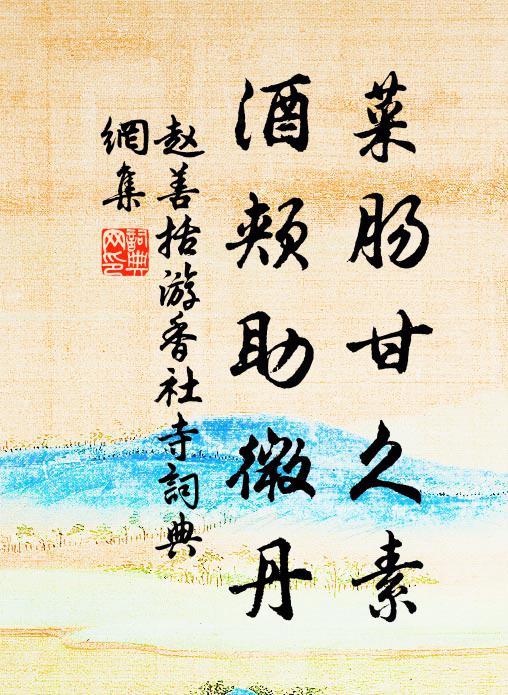 菜肠甘久素
酒颊助微丹
赵善括游香社寺词典
網集
詞典
网印